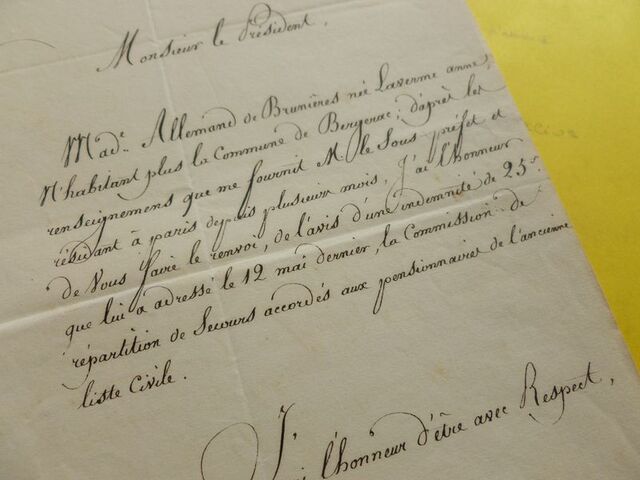 Monsieur le Président,
Made. Allemand de Brunières née Laverme anne,
N'habitant plus la Commune de Bergerac; d'après les
renseignemens que me fournit M. le Sous-préfet et
résidant à paris depuis plusieurs mois, J'ai l'honneur
de Vous faire le renvoi, de l'avis d'une indemnité de 25f.
que lui a adressé le 12 mai dernier, la Commission de
répartition de Secours accordés aux pensionnaires de l'ancienne
liste Civile.
J'ai l'honneur d'être avec Respect,